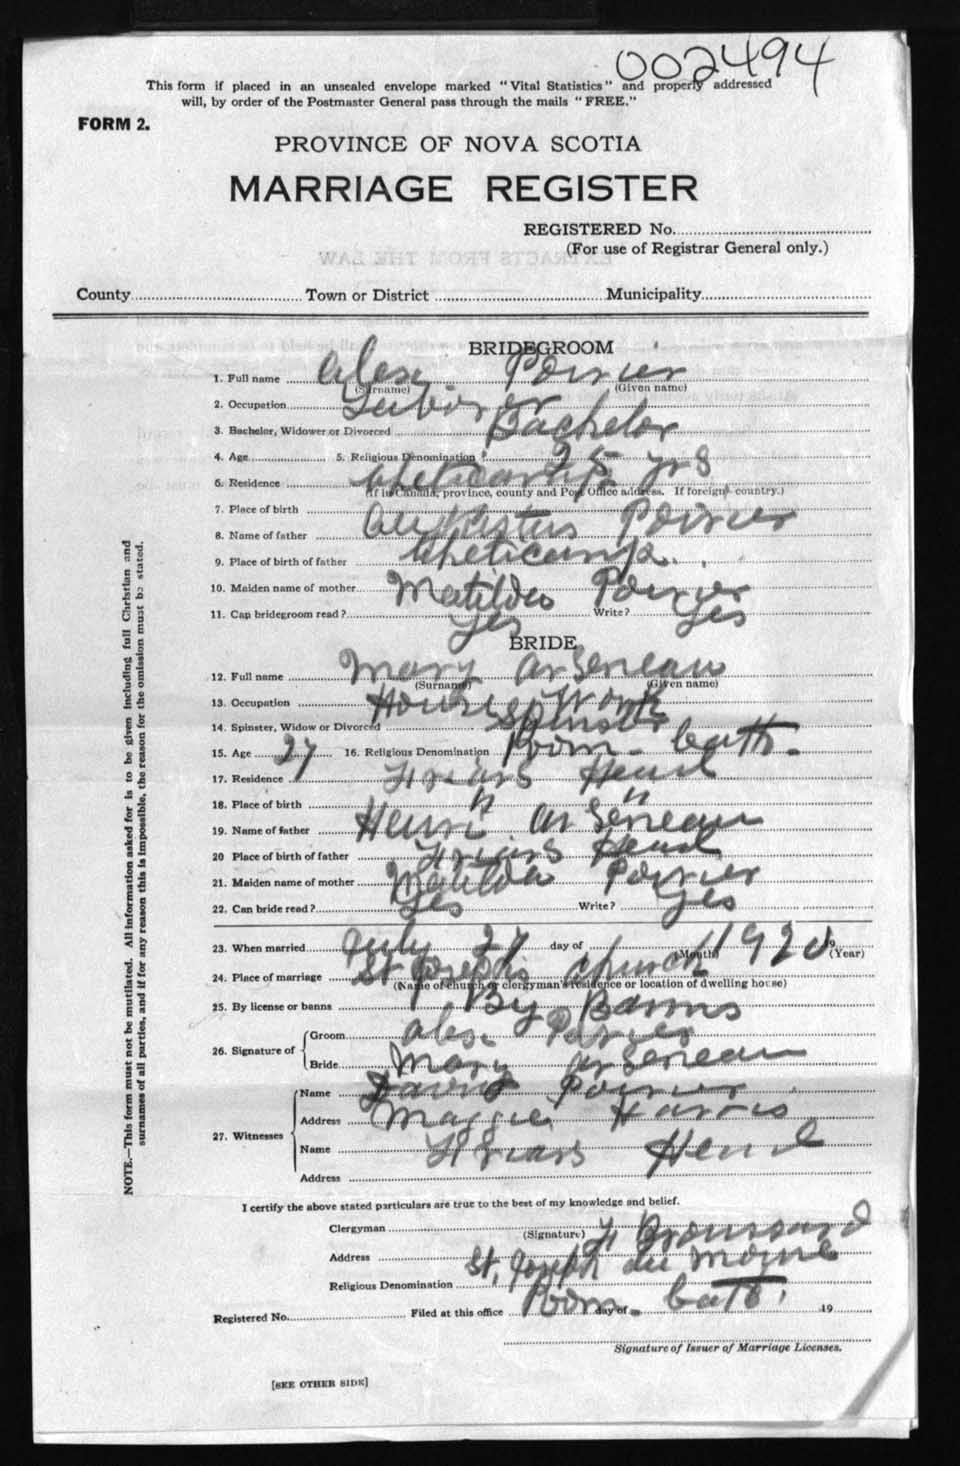 002494
This form if placed in an unsealed envelope marked "Vital Statistics" and properly addressed
will, by order of the Postmaster General pass through the mails "FREE."
FORM 2.
PROVINCE OF NOVA SCOTIA
MARRIAGE REGISTER
REGISTERED No.
(For use of Registrar General only.)
EXTRACTS FROM THE LAW
County Town or District Municipality
BRIDEGROOM
1. Full name Alex Poirier
(Surname) (Given name)
2. Occupation
3. Bachelor, Widower or Divorced Bachelor
4. Age 5. Religious Denomination 25 yrs
6. Residence Cheticamp
(If in Canada, province, county and Post Office address. If foreign country.)
7. Place of birth
8. Name of father Poirier
9. Place of birth of father Cheticamp.
10. Maiden name of mother Matilda Poirier
11. Can bridegroom read? Yes Write? Yes
BRIDE
12. Full name Mary Arseneau
(Surname) (Given name)
13. Occupation House Work
14. Spinster, Widow or Divorced Spinster
15. Age 27 16. Religious Denomination Rom. Cath.
17. Residence Friars Head
18. Place of birth " "
19. Name of father Henri Arseneau
20 Place of birth of father Friars Head
21. Maiden name of mother Matilda Poirier
22. Can bride read? Yes Write? Yes
23. When married July 27 day of 1920 19
(Month) (Year)
24. Place of marriage St Joseph's Church
(Name of church or clergyman's residence or location of dwelling house)
25. By license or banns By Banns
26. Signature of Groom Alex. Poirier
Bride Mary Arseneau
27. Witnesses Name Poirier
Address Maggie Harris
Name Friars Head
Address
I certify the above stated particulars are true to the best of my knowledge and belief.
Clergyman Broussard
(Signature)
Address St. Joseph du Moine
Religious Denomination Rom. Cath.
Registered No. Filed at this office day of 19
Signature of Issuer of Marriage Licenses.
[SEE OTHER SIDE]
NOTE.—This form must not be mutilated. All information asked for is to be given including full Christian and
surnames of all parties, and if for any reason this is impossible, the reason for the omission must be stated.